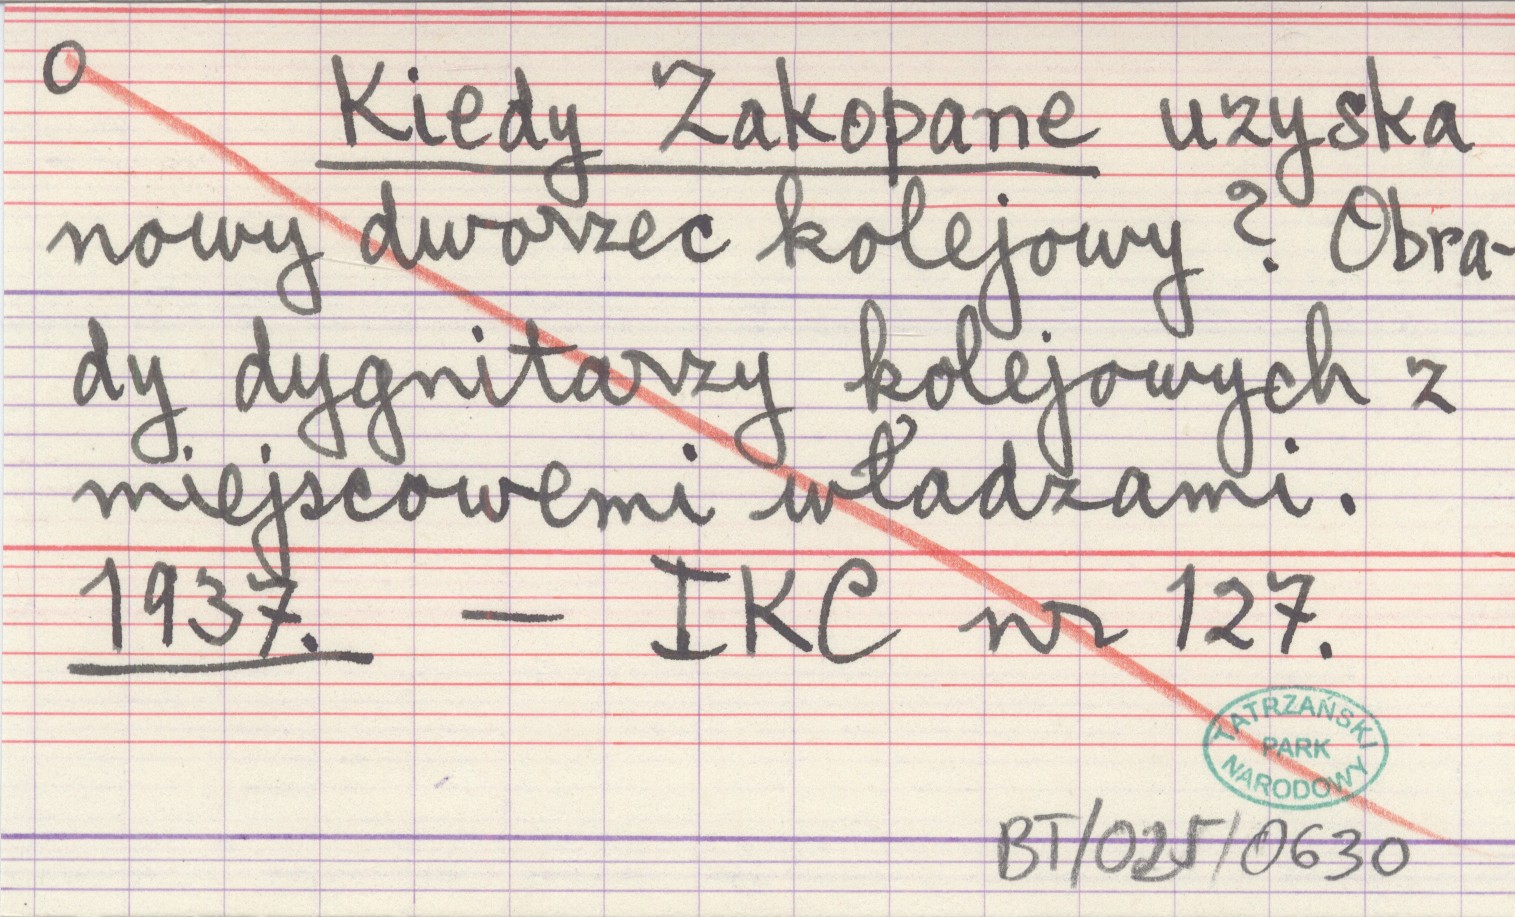 O
Kiedy Zakopane uzyska
nowy dworzec kolejowy? Obra-
dy dygnitarzy kolejowych z
miejscowemi władzami.
1937. — IKC nr 127.
TATRZAŃSKI
PARK
NARODOWY
BT/025/0630